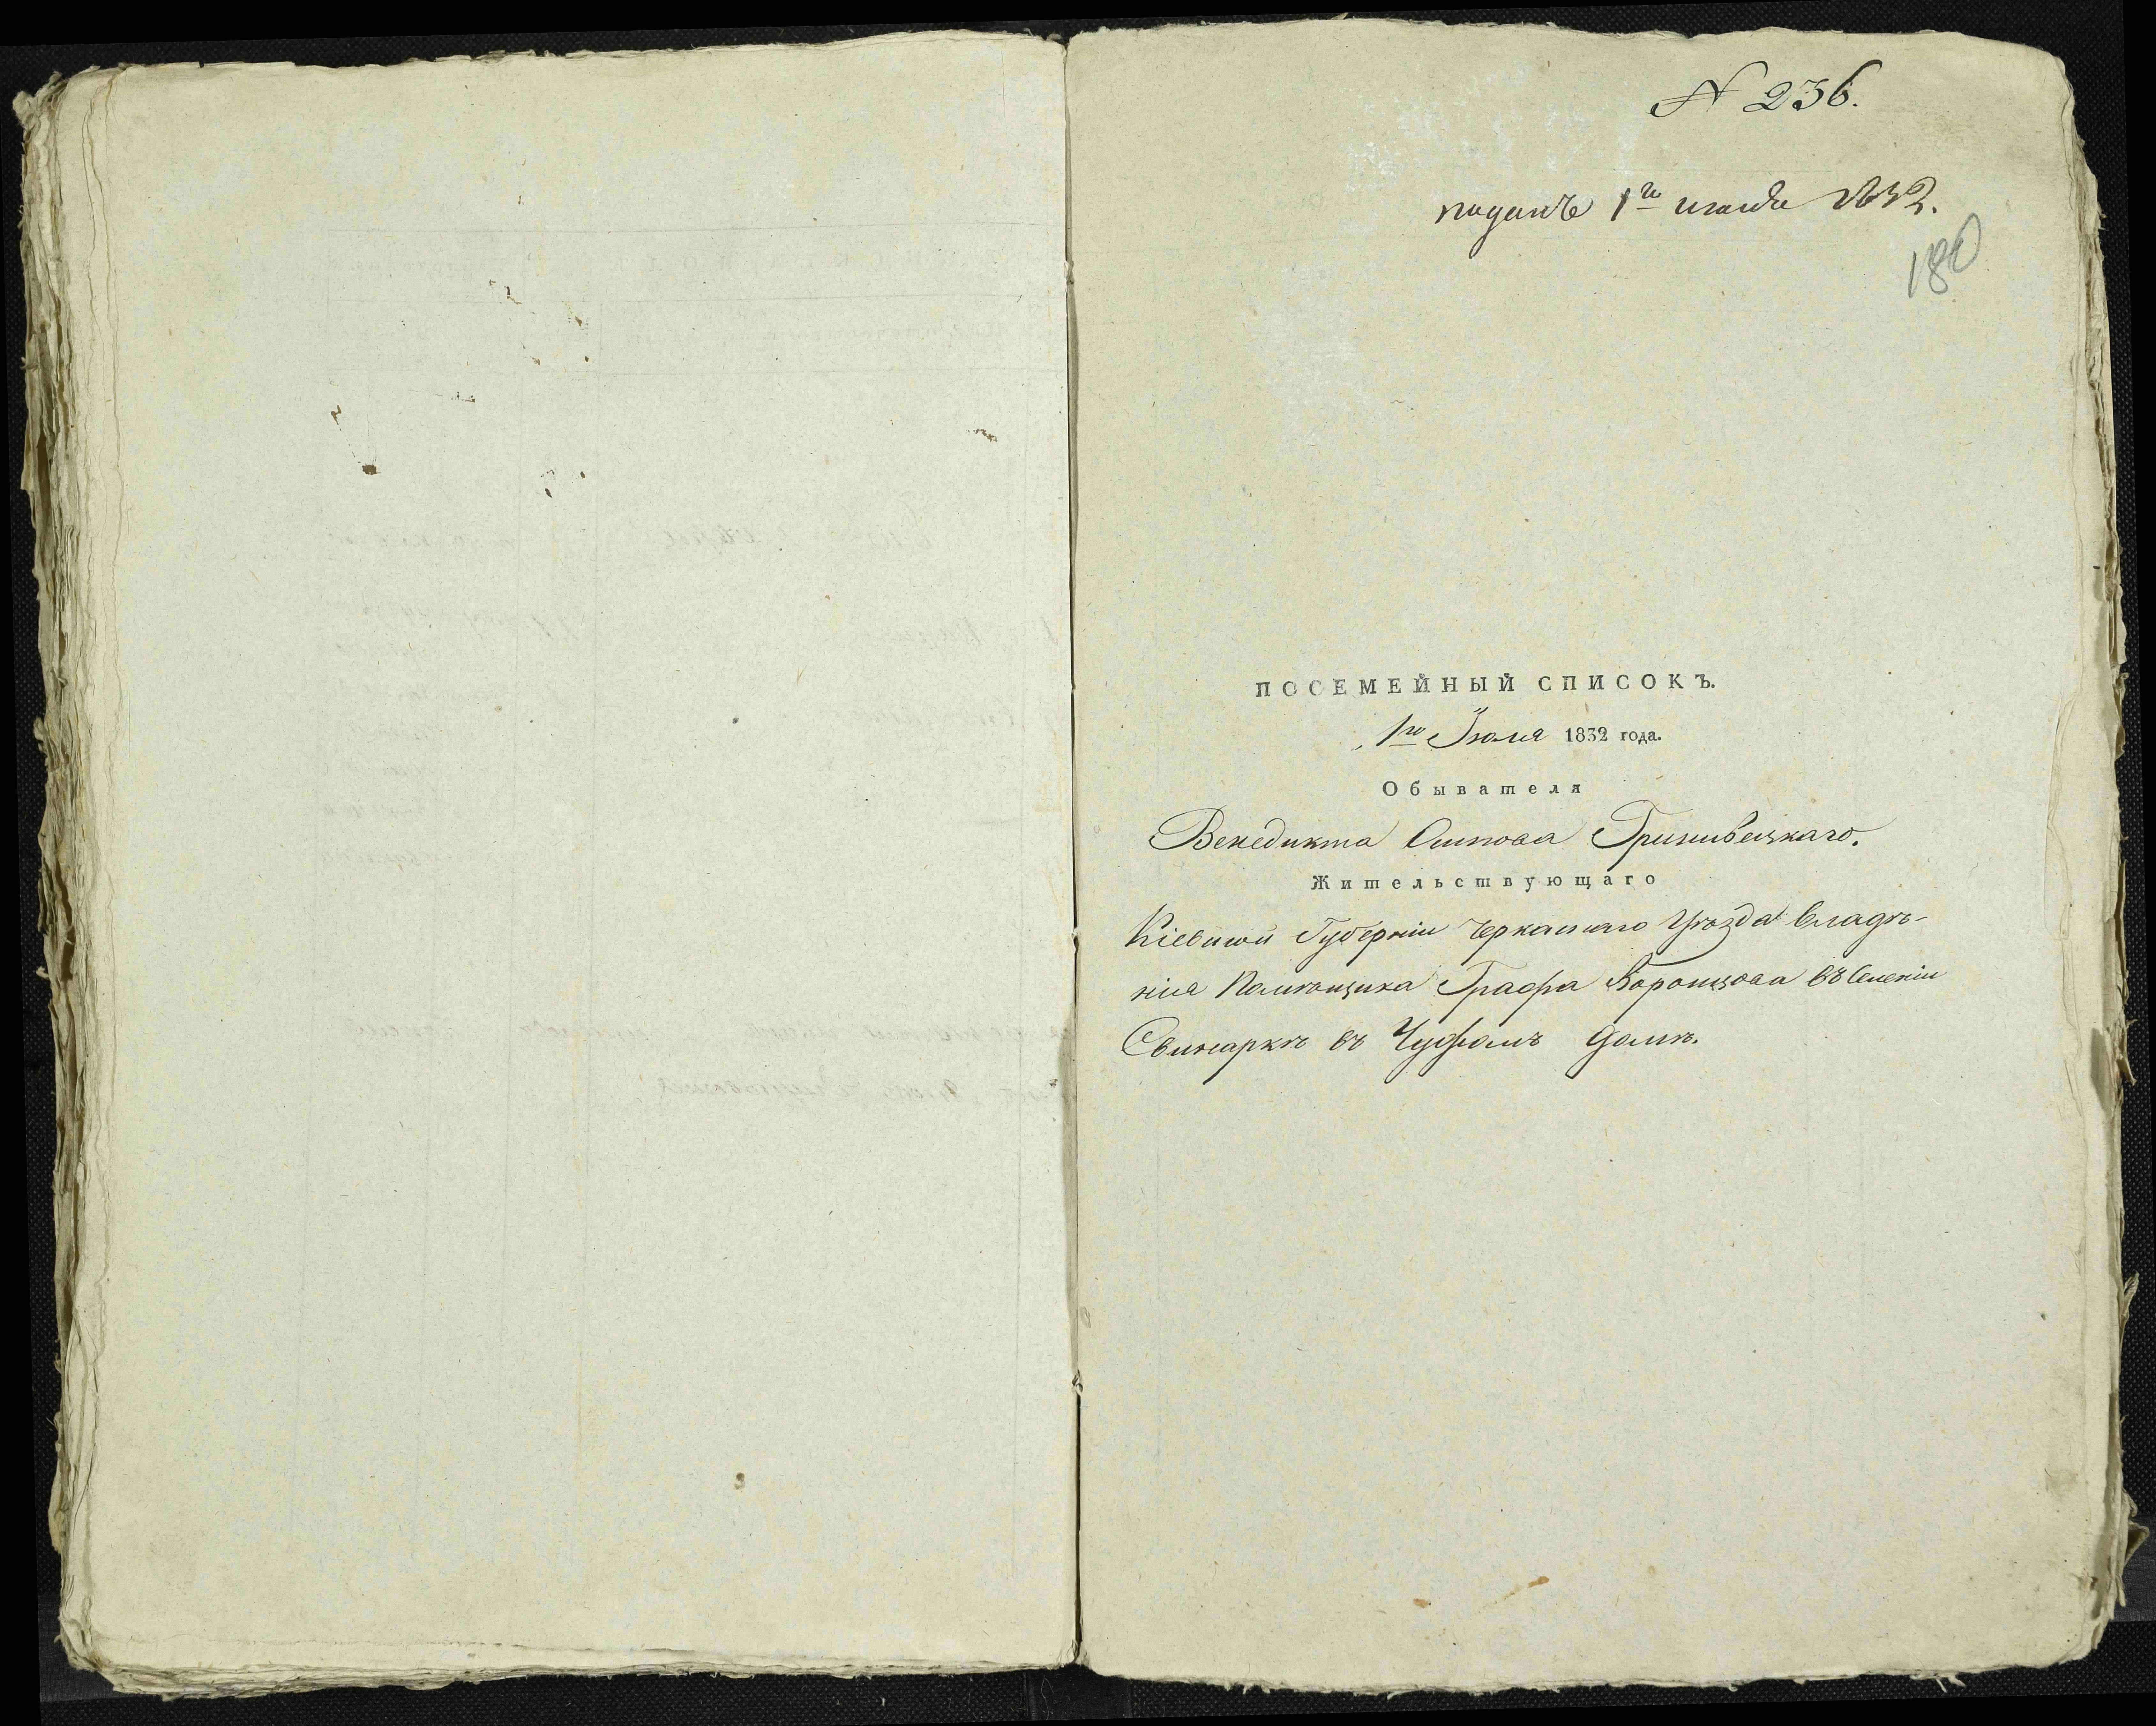 N 236.
поданъ 1го июля 1832.
180
ПОСЕМЕЙНЫЙ СПИСОКЪ.
1го Іюля 1832 года.
Обывателя
Венедикта Осипова Гриневецкаго.
Жительствующаго
Кіевской Губерніи Черкаскаго Уѣзда владѣ-
нія Помѣщика Графа Воронцова въ Селеніи
Свинаркѣ въ Чужомъ домѣ.